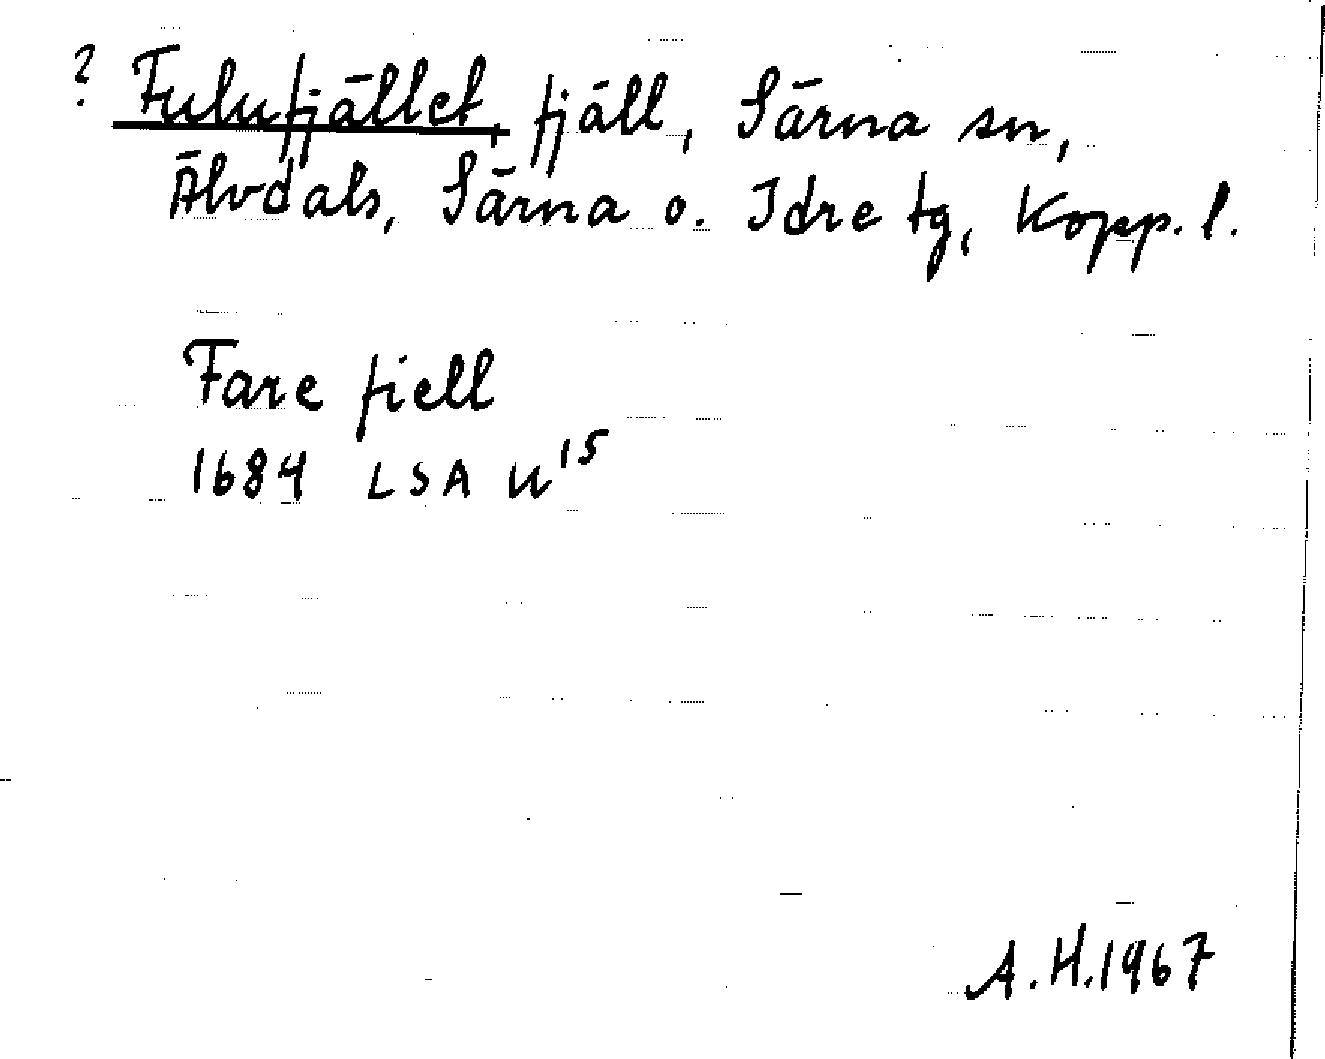 ? Fulufjället, fjäll, Särna sn,
Älvdals, Särna o. Idre tg, Kopp. l.
Fare fiell
1684 LSA U¹⁵
A.H. 1967